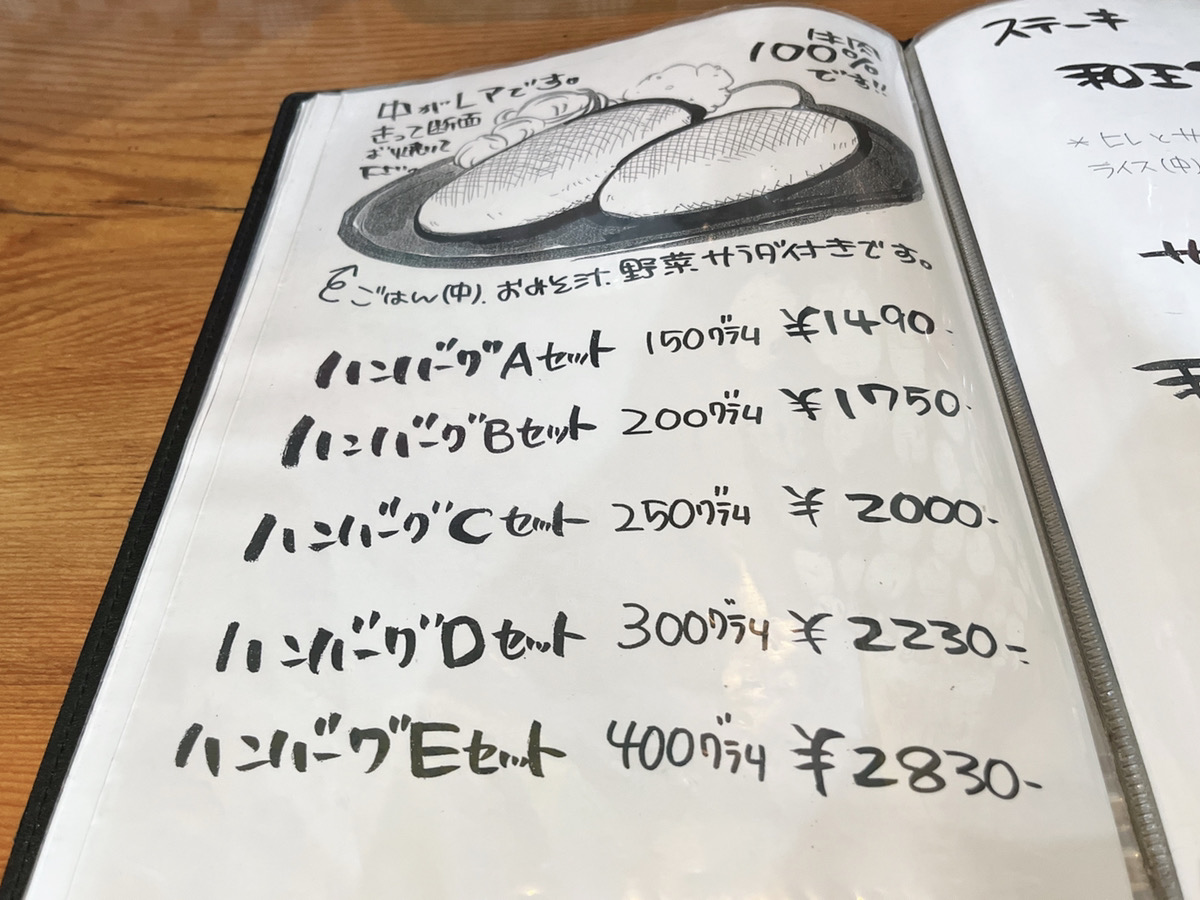 牛肉
100%
です!!
中がレアです。
きって断面
お焼きして
下さい
ごはん(中)、おみそ汁、野菜サラダ付きです。
ハンバーグAセット 150グラム ¥1490-
ハンバーグBセット 200グラム ¥1750-
ハンバーグCセット 250グラム ¥2000-
ハンバーグDセット 300グラム ¥2230-
ハンバーグEセット 400グラム ¥2830-
ステーキ
和王
*ヒレとサ
ライス(中)
サ